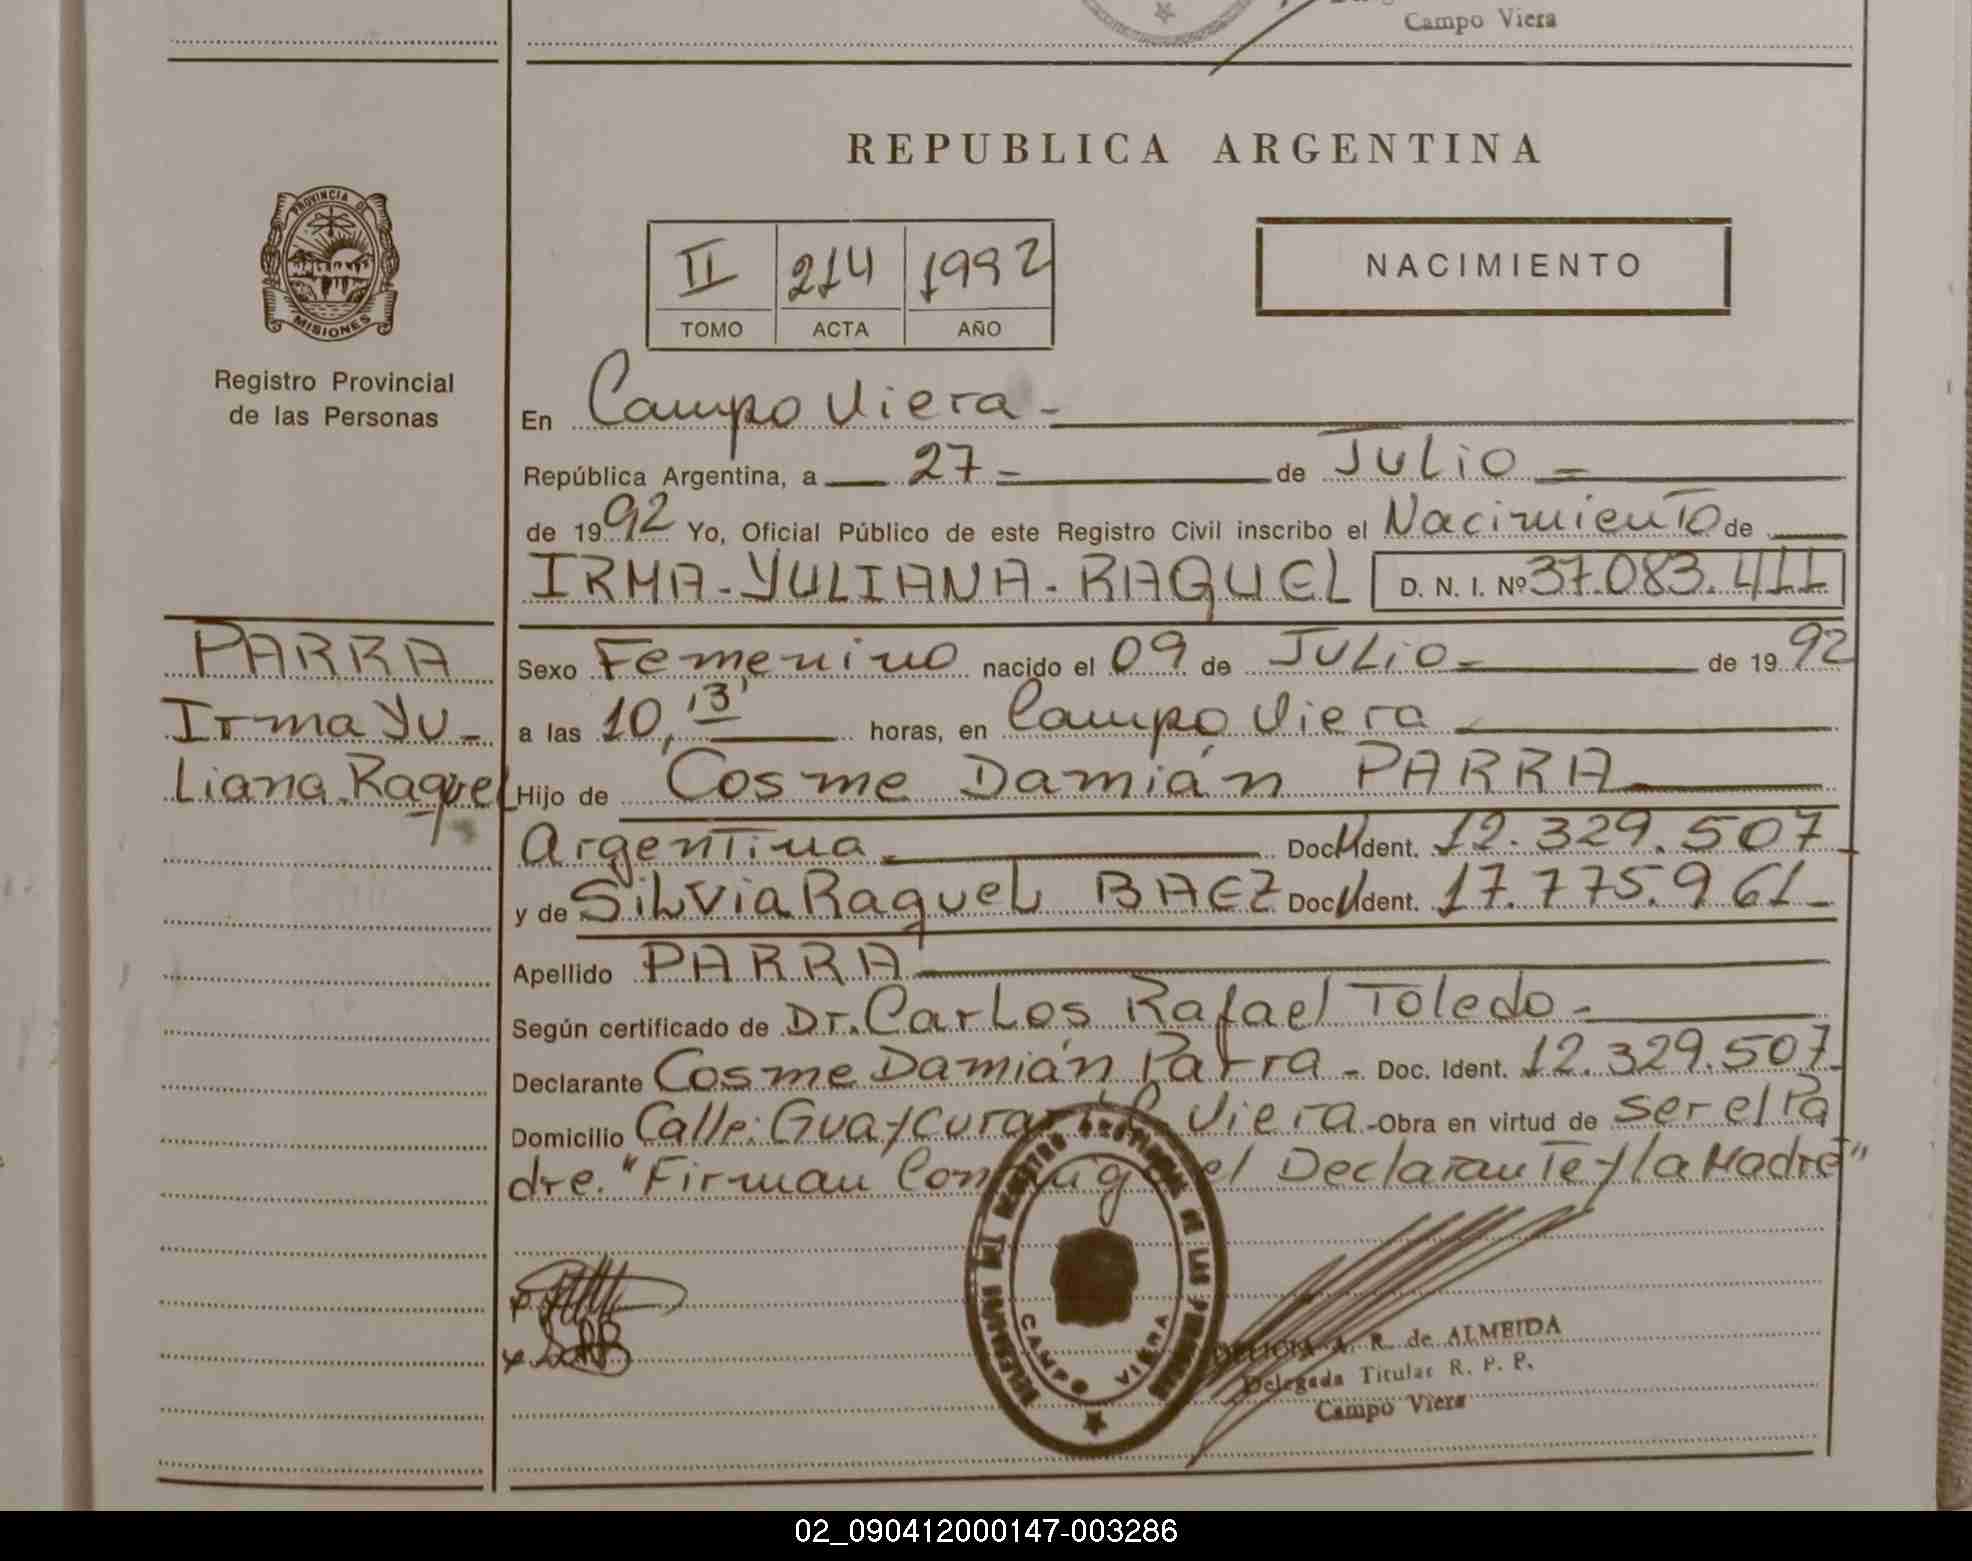 Campo Viera
REPUBLICA ARGENTINA
PROVINCIA DE
MISIONES
Registro Provincial
de las Personas
II 214 1992
TOMO ACTA AÑO
NACIMIENTO
En Campo Viera -
República Argentina, a 27 = de Julio =
de 1992 Yo, Oficial Público de este Registro Civil inscribo el Nacimiento de
IRMA - YULIANA - RAQUEL D. N. I. Nº 37.083.411
PARRA
Irma Yu -
Liana Raquel
Sexo Femenino nacido el 09 de Julio = de 1992
a las 10, 13' horas, en Campo Viera
Hijo de Cosme Damián PARRA
Argentina Doc U Ident. 12.329.507
y de Silvia Raquel BAEZ Doc U Ident. 17.775.961 -
Apellido PARRA
Según certificado de Dr. Carlos Rafael Toledo -
Declarante Cosme Damián Parra - Doc. Ident. 12.329.507 -
Domicilio Calle: Guaycurari C. Viera - Obra en virtud de ser el Pa
dre. "Firman Conmigo el Declarante y la Madre"
REGISTRO PROVINCIAL DE LAS PERSONAS
CAMPO VIERA
A. R. de ALMEIDA
Delegada Titular R. P. P.
Campo Viera
02_090412000147-003286